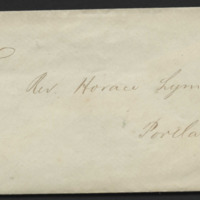 Rev. Horace Lym
Portla